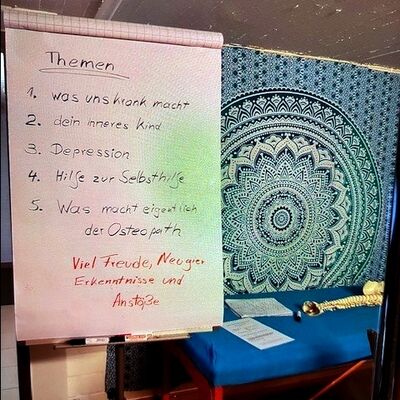 Themen
1. was uns krank macht
2. dein inneres Kind
3. Depression
4. Hilfe zur Selbsthilfe
5. Was macht eigentlich
der Osteopath
Viel Freude, Neugier
Erkenntnisse und
Anstöße